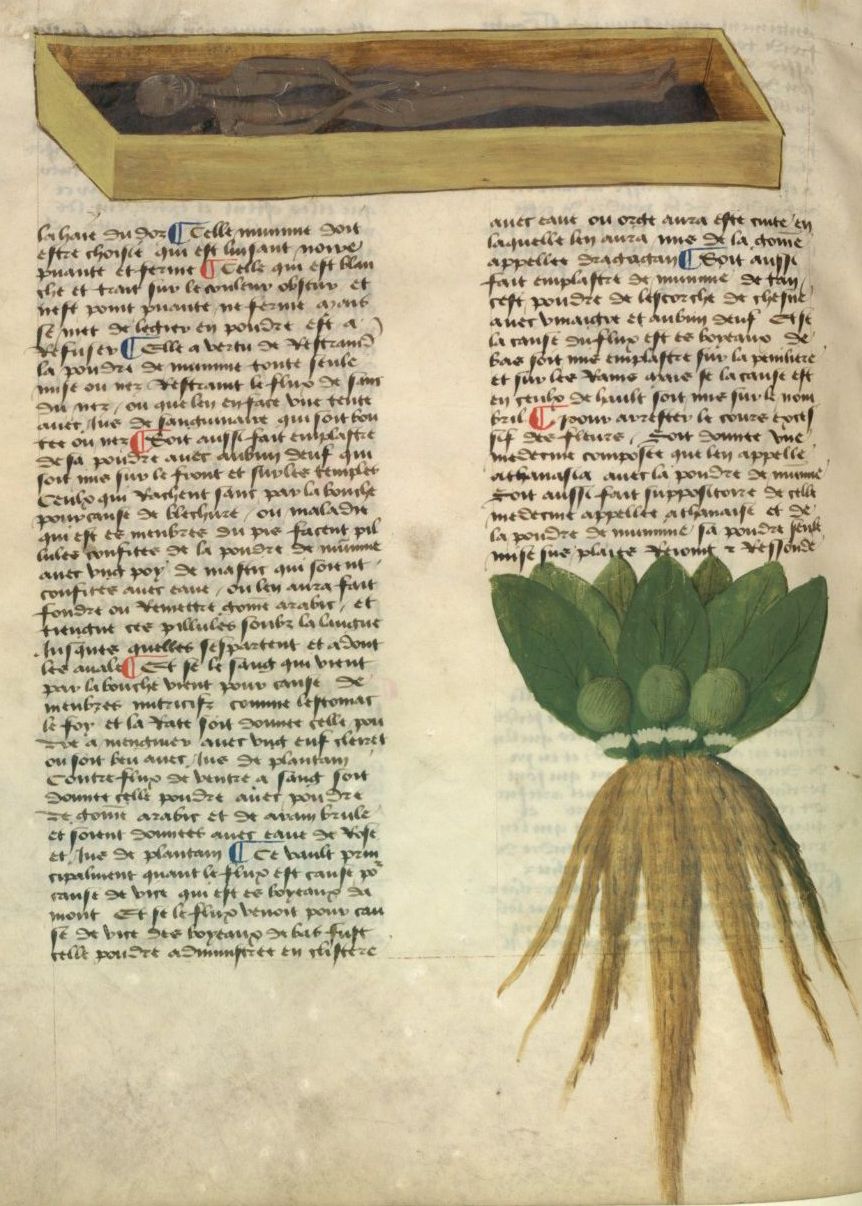 la haie du dos ¶ Celle mumme doit
estre choisie qui est luisant noire
puante et ferme ¶ Celle qui est blan
che et trait sur le couleur obscur et
nest point puante ne ferme mais
se met de legier en pouldre est a
refuser ¶ Elle a vertu de Restraind
la pouldre de mumme toute seule
mise ou nez Restraint le flux de sanc
du nez, ou que len en face une tente
avec Jus de sanguinaire qui soit bou
tee ou nez ¶ Soit aussi fait emplastre
de sa pouldre avec aubun deuf qui
soit mis sur le front et sur les temples
Ceulx qui Rachent sanc par la bouche
pour cause de blechure, ou maladie
qui est es menbres du pis facent pil
lules confites de la pouldre de mumme
avec ung poy de mastic qui soient
confites avec eaue, ou len aura fait
fondre ou Remettre gome arabic, et
tiengne ces pillules soubz la langue
Jusques quelles sespartent et adont
les avale ¶ Et se le sang qui vient
par la bouche vient pour cause de
menbres nutritifz comme lestomac
le foy et la Rate soit donnee celle poul
dre a mengier avec ung euf
ou soit beu avec Jus de plantain
Contre flux de ventre a sang soit
donnee celle pouldre avec pouldre
de gome arabic et de aram brule
et soient donnees avec eaue de Rose
et Jus de plantain ¶ Ce vault prin
cipalment quant le flux est cause po'
cause de vice qui est es boyeaux da
mont Et se le flux venoit pour cau
se de vice des boyeaux de bas fust
celle pouldre admimstree en clistere
avec eaue ou orge aura este cuite en
laquelle len aura mis de la gome
appellee dragagan ¶ Soit aussi
fait emplastre de mumme de tan
cest pouldre de lescorche de chesne
avec vinaigre et aubun deuf Et se
la cause du flux est es boyeaux de
bas soit mis emplastre sur la peniliere
et sur les Rains mais se la cause est
en ceulx de hault soit mis sur le nom
bril ¶ Pour arrester le cours exces
sif des fleurs, Soit donnee une
medecine composee que len appelle
athanasia avec la pouldre de mumme
Soit aussi fait suppositoire de celle
medecine appellee athanaise et de
la pouldre de mumme sa pouldre seule
mise sus plaies Reioint et Ressoude